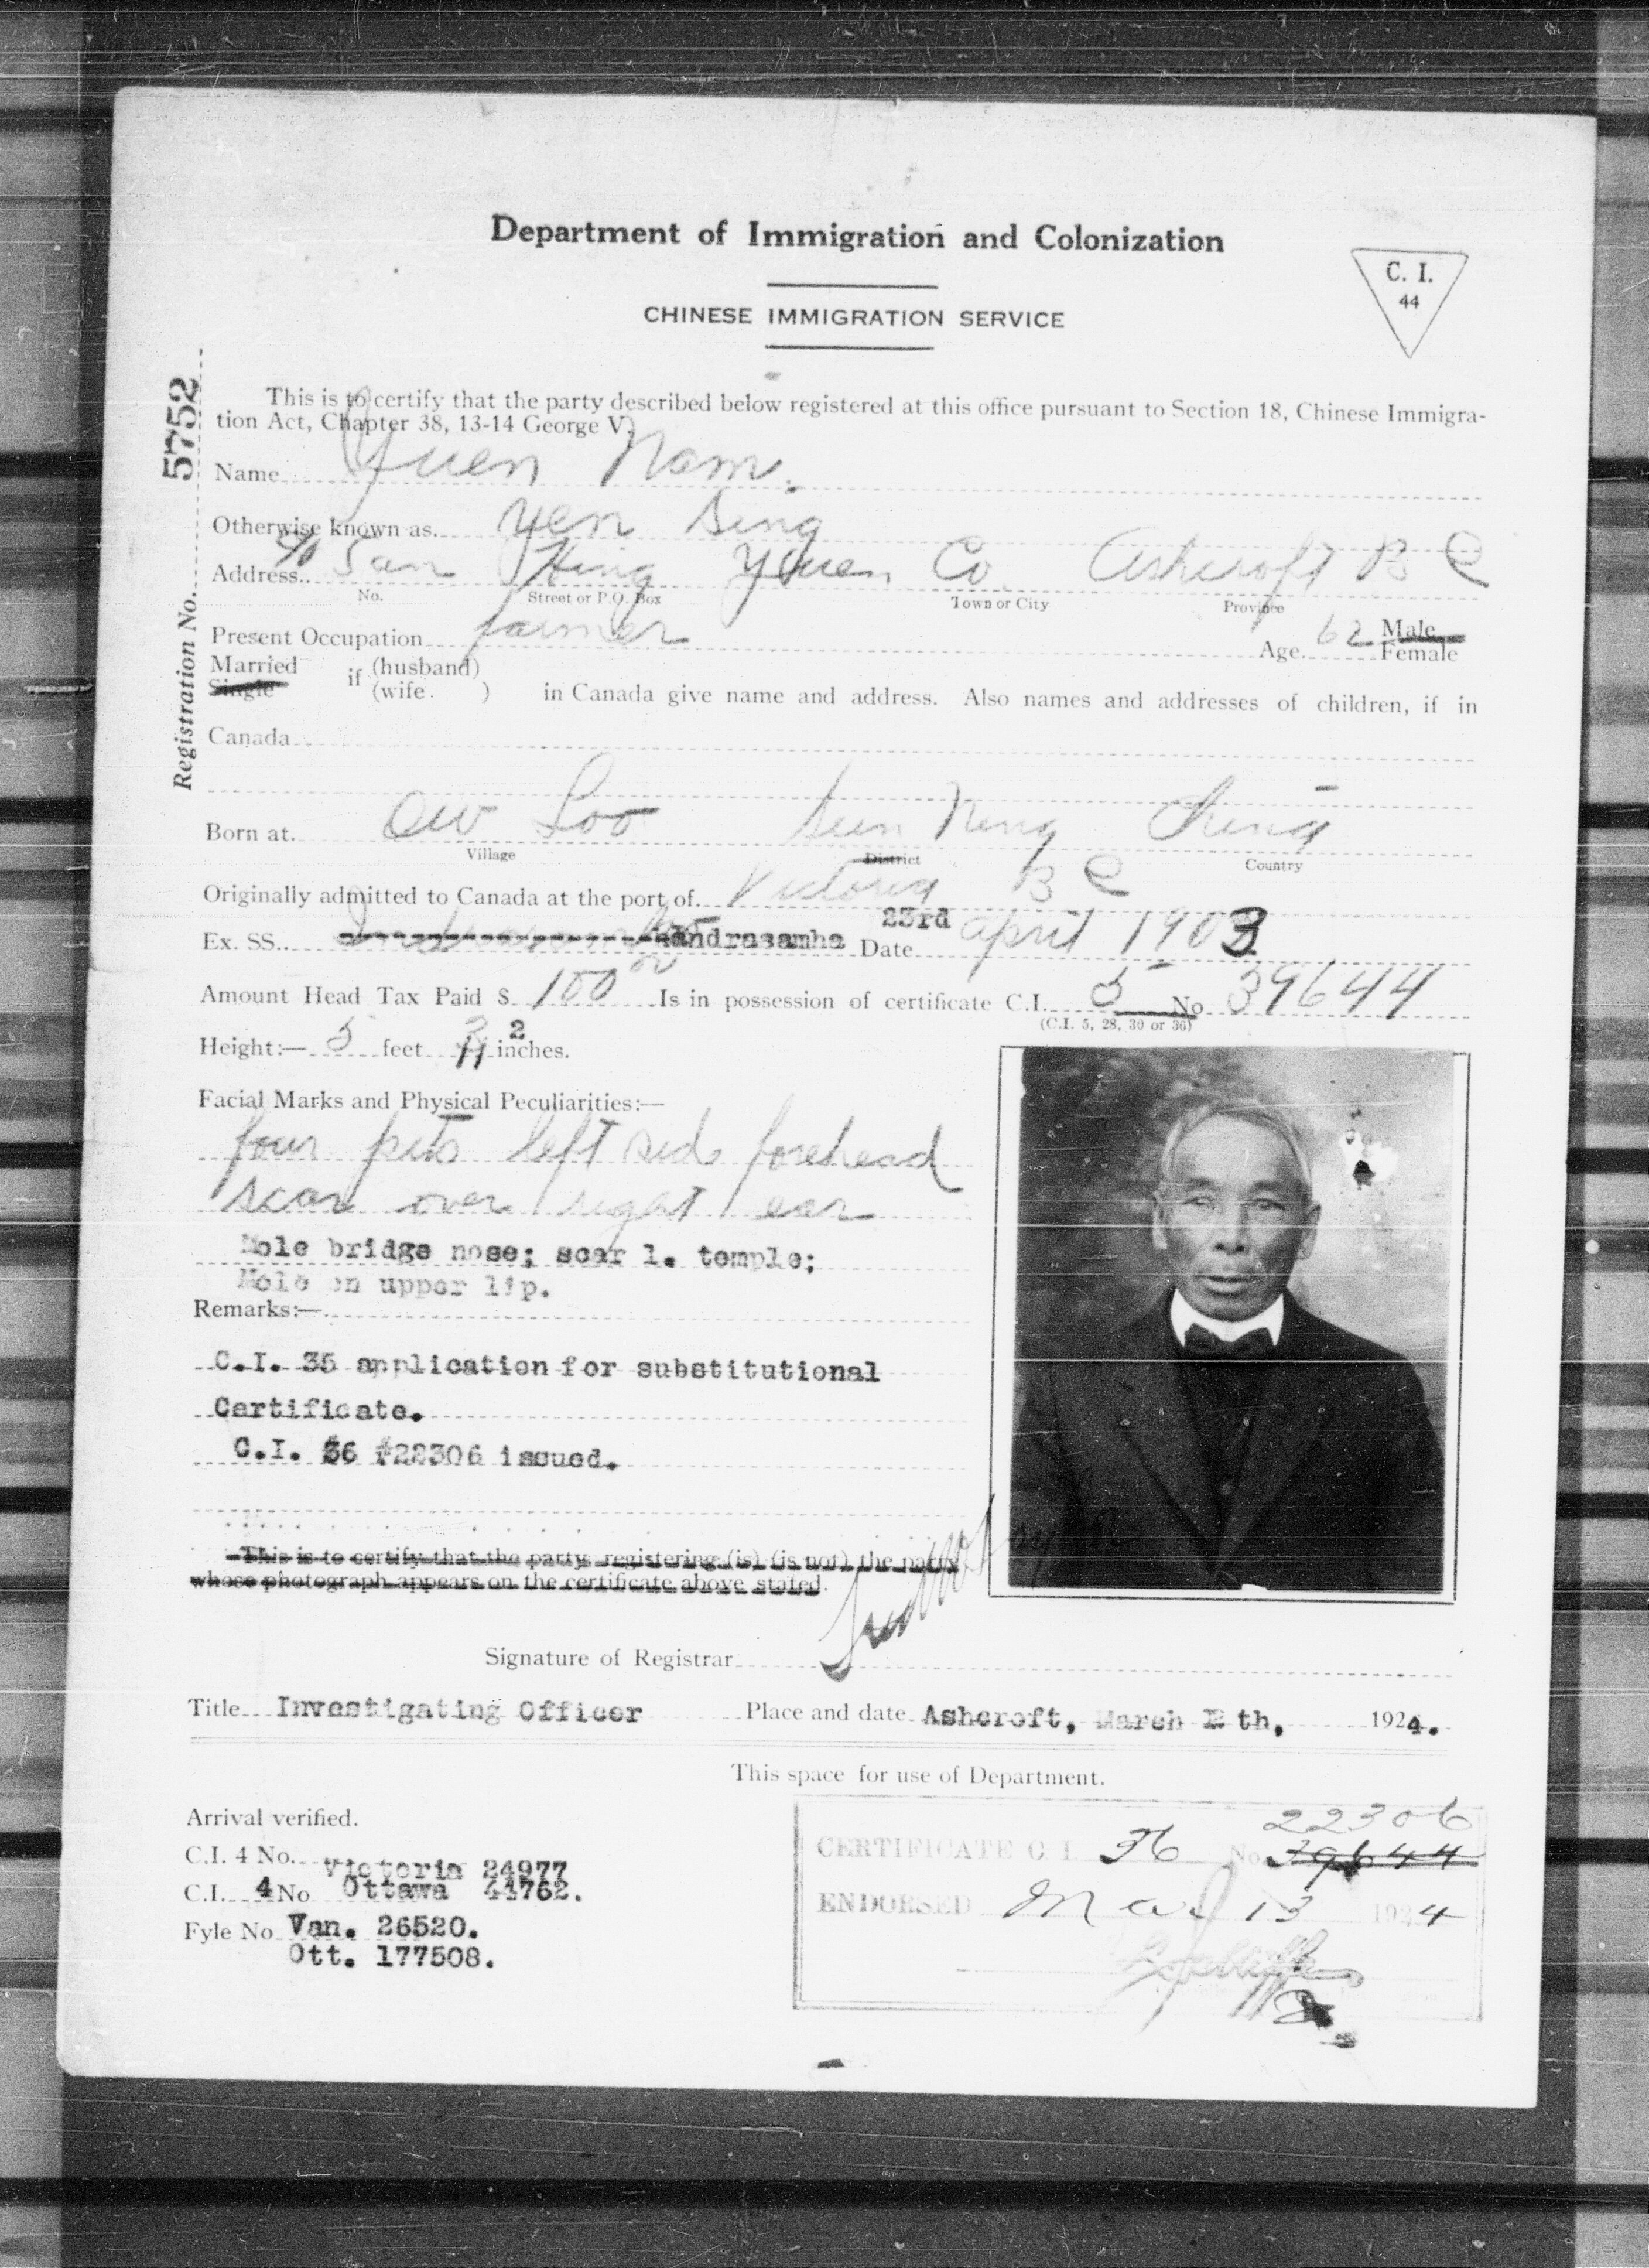 Department of Immigration and Colonization
C. I.
44
CHINESE IMMIGRATION SERVICE
Registration No. 5752
This is to certify that the party described below registered at this office pursuant to Section 18, Chinese Immigra-
tion Act, Chapter 38, 13-14 George V.
Name Yuen Nam.
Otherwise known as Yen Sing
Address c/o San Hing Yuen Co. Ashcroft B C
No. Street or P.O. Box Town or City Province
Present Occupation farmer Age 62 Male Female
Married
Single if (husband) (wife ) in Canada give name and address. Also names and addresses of children, if in
Canada
Born at Ow Loo Sun Neng China
Village District Country
Originally admitted to Canada at the port of Victoria B C
Ex. SS. Indrasamha Date 23rd April 1903
Amount Head Tax Paid $ 100 Is in possession of certificate C.I. 5 No 39644
(C.I. 5, 28, 30 or 36)
Height:— 5 feet 2 inches.
Facial Marks and Physical Peculiarities:—
four pits left side forehead
scar over right ear
Mole bridge nose; scar l. temple;
Mole on upper lip.
Remarks:—
C.I. 35 application for substitutional
Certificate.
C.I. 36 #22306 issued.
This is to certify that the party registering (is) (is not) the party
whose photograph appears on the certificate above stated.
Signature of Registrar
Title Investigating Officer Place and date Ashcroft, March th, 1924.
This space for use of Department.
Arrival verified.
C.I. 4 No. Victoria 24977
C.I. 4 No Ottawa 44762.
Fyle No Van. 26520.
Ott. 177508.
22306
CERTIFICATE C. I. 36 No. 39644
ENDORSED Mar 13 1924